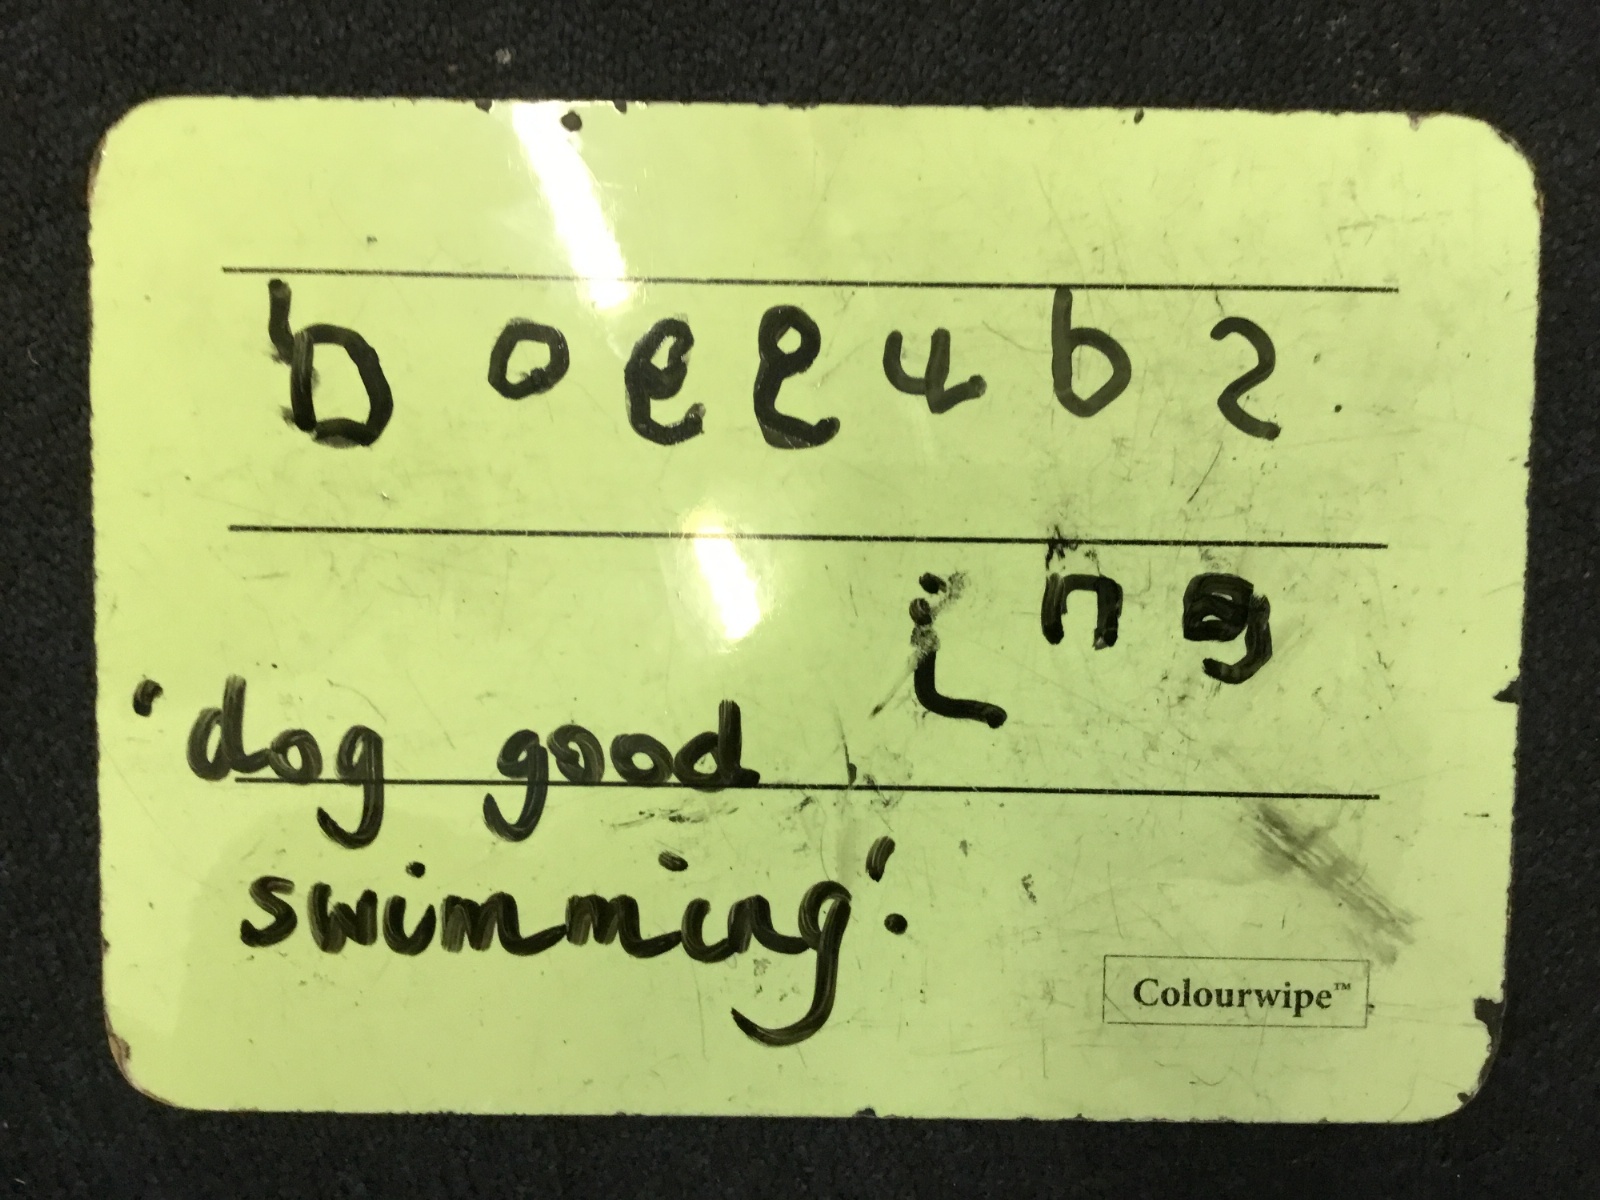 b o g g u b s
i n g
'dog good
swimming'.
Colourwipe™